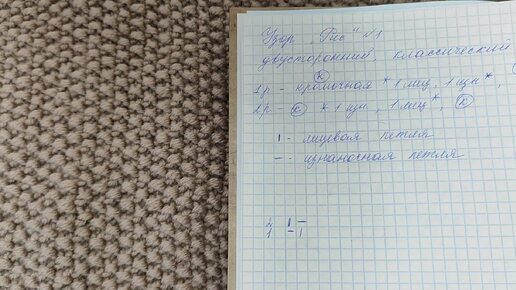 Узор "Рис" №1
двусторонний, классический
К
1р - кромочная *1 лиц, 1 изн*,
2р - К *1 изн, 1 лиц*, К
I - лицевая петля
— - изнаночная петля
2 I —
1 — I